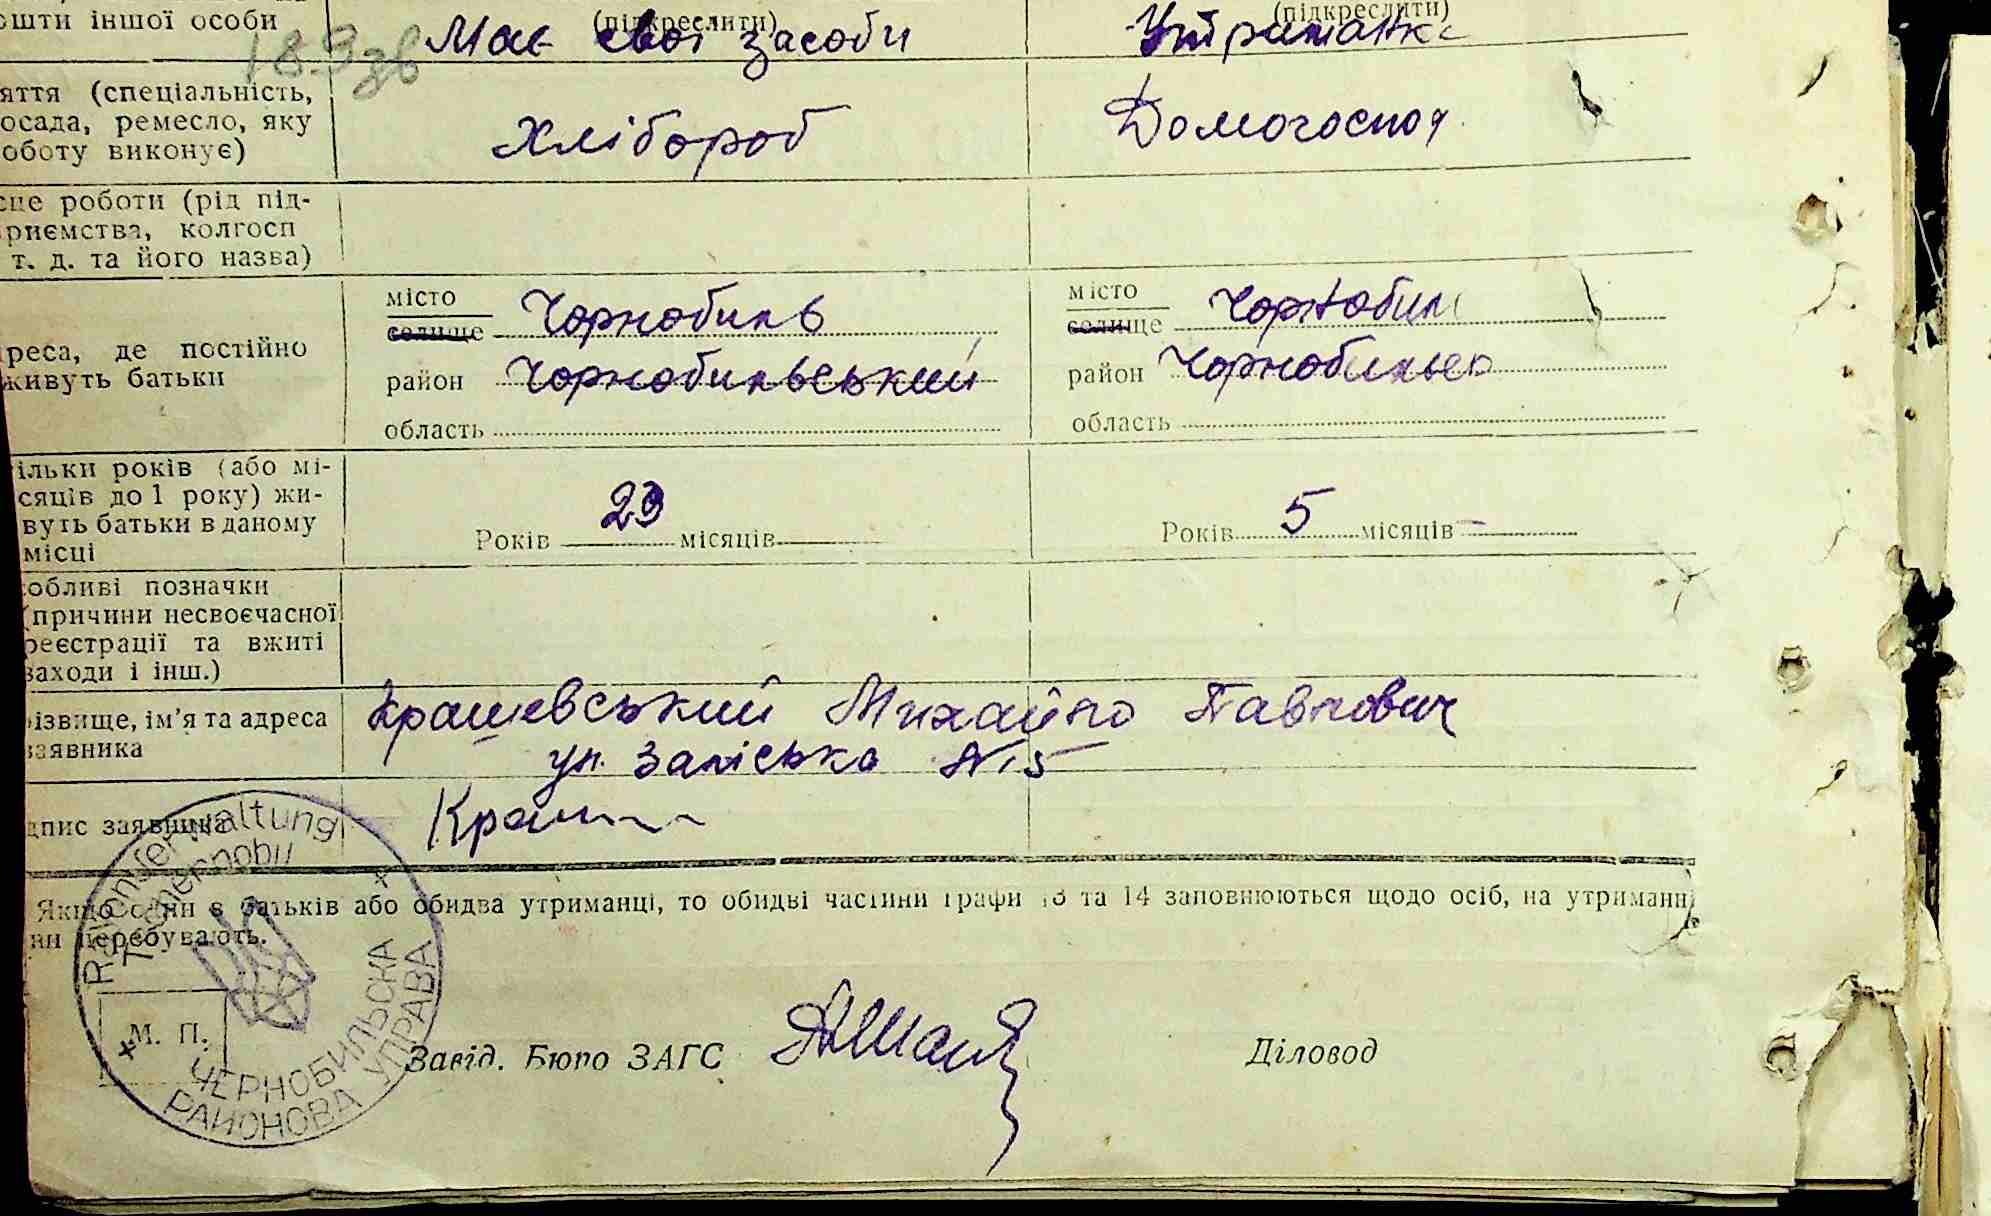 ошти іншої особи
(підкреслити)
(підкреслити)
Має свої засоби
Утриманка
яття (спеціальність,
осада, ремесло, яку
оботу виконує)
Хлібороб
Домогоспод
сце роботи (рід під-
приємства, колгосп
т. д. та його назва)
реса, де постійно
живуть батьки
місто
селище Чорнобиль
район Чорнобильський
область
місто
селище Чорнобил
район Чорнобильс
область
ільки років (або мі-
сяців до 1 року) жи-
вуть батьки в даному
місці
Років 23 місяців
Років 5 місяців —
собливі позначки
(причини несвоєчасної
реєстрації та вжиті
заходи і інш.)
ізвище, ім'я та адреса
заявника
Крашевський Михайло Павлович
ул. Заліська № 5
дпис заявника
Якщо один з батьків або обидва утриманці, то обидві частини графи 13 та 14 заповнюються щодо осіб, на утриманні
ни перебувають.
Rayonsferwaltung
Tschernobil
ЧЕРНОБИЛЬСКА
РАЙОНОВА УПРАВА
М. П.
Завід. Бюро ЗАГС
Діловод